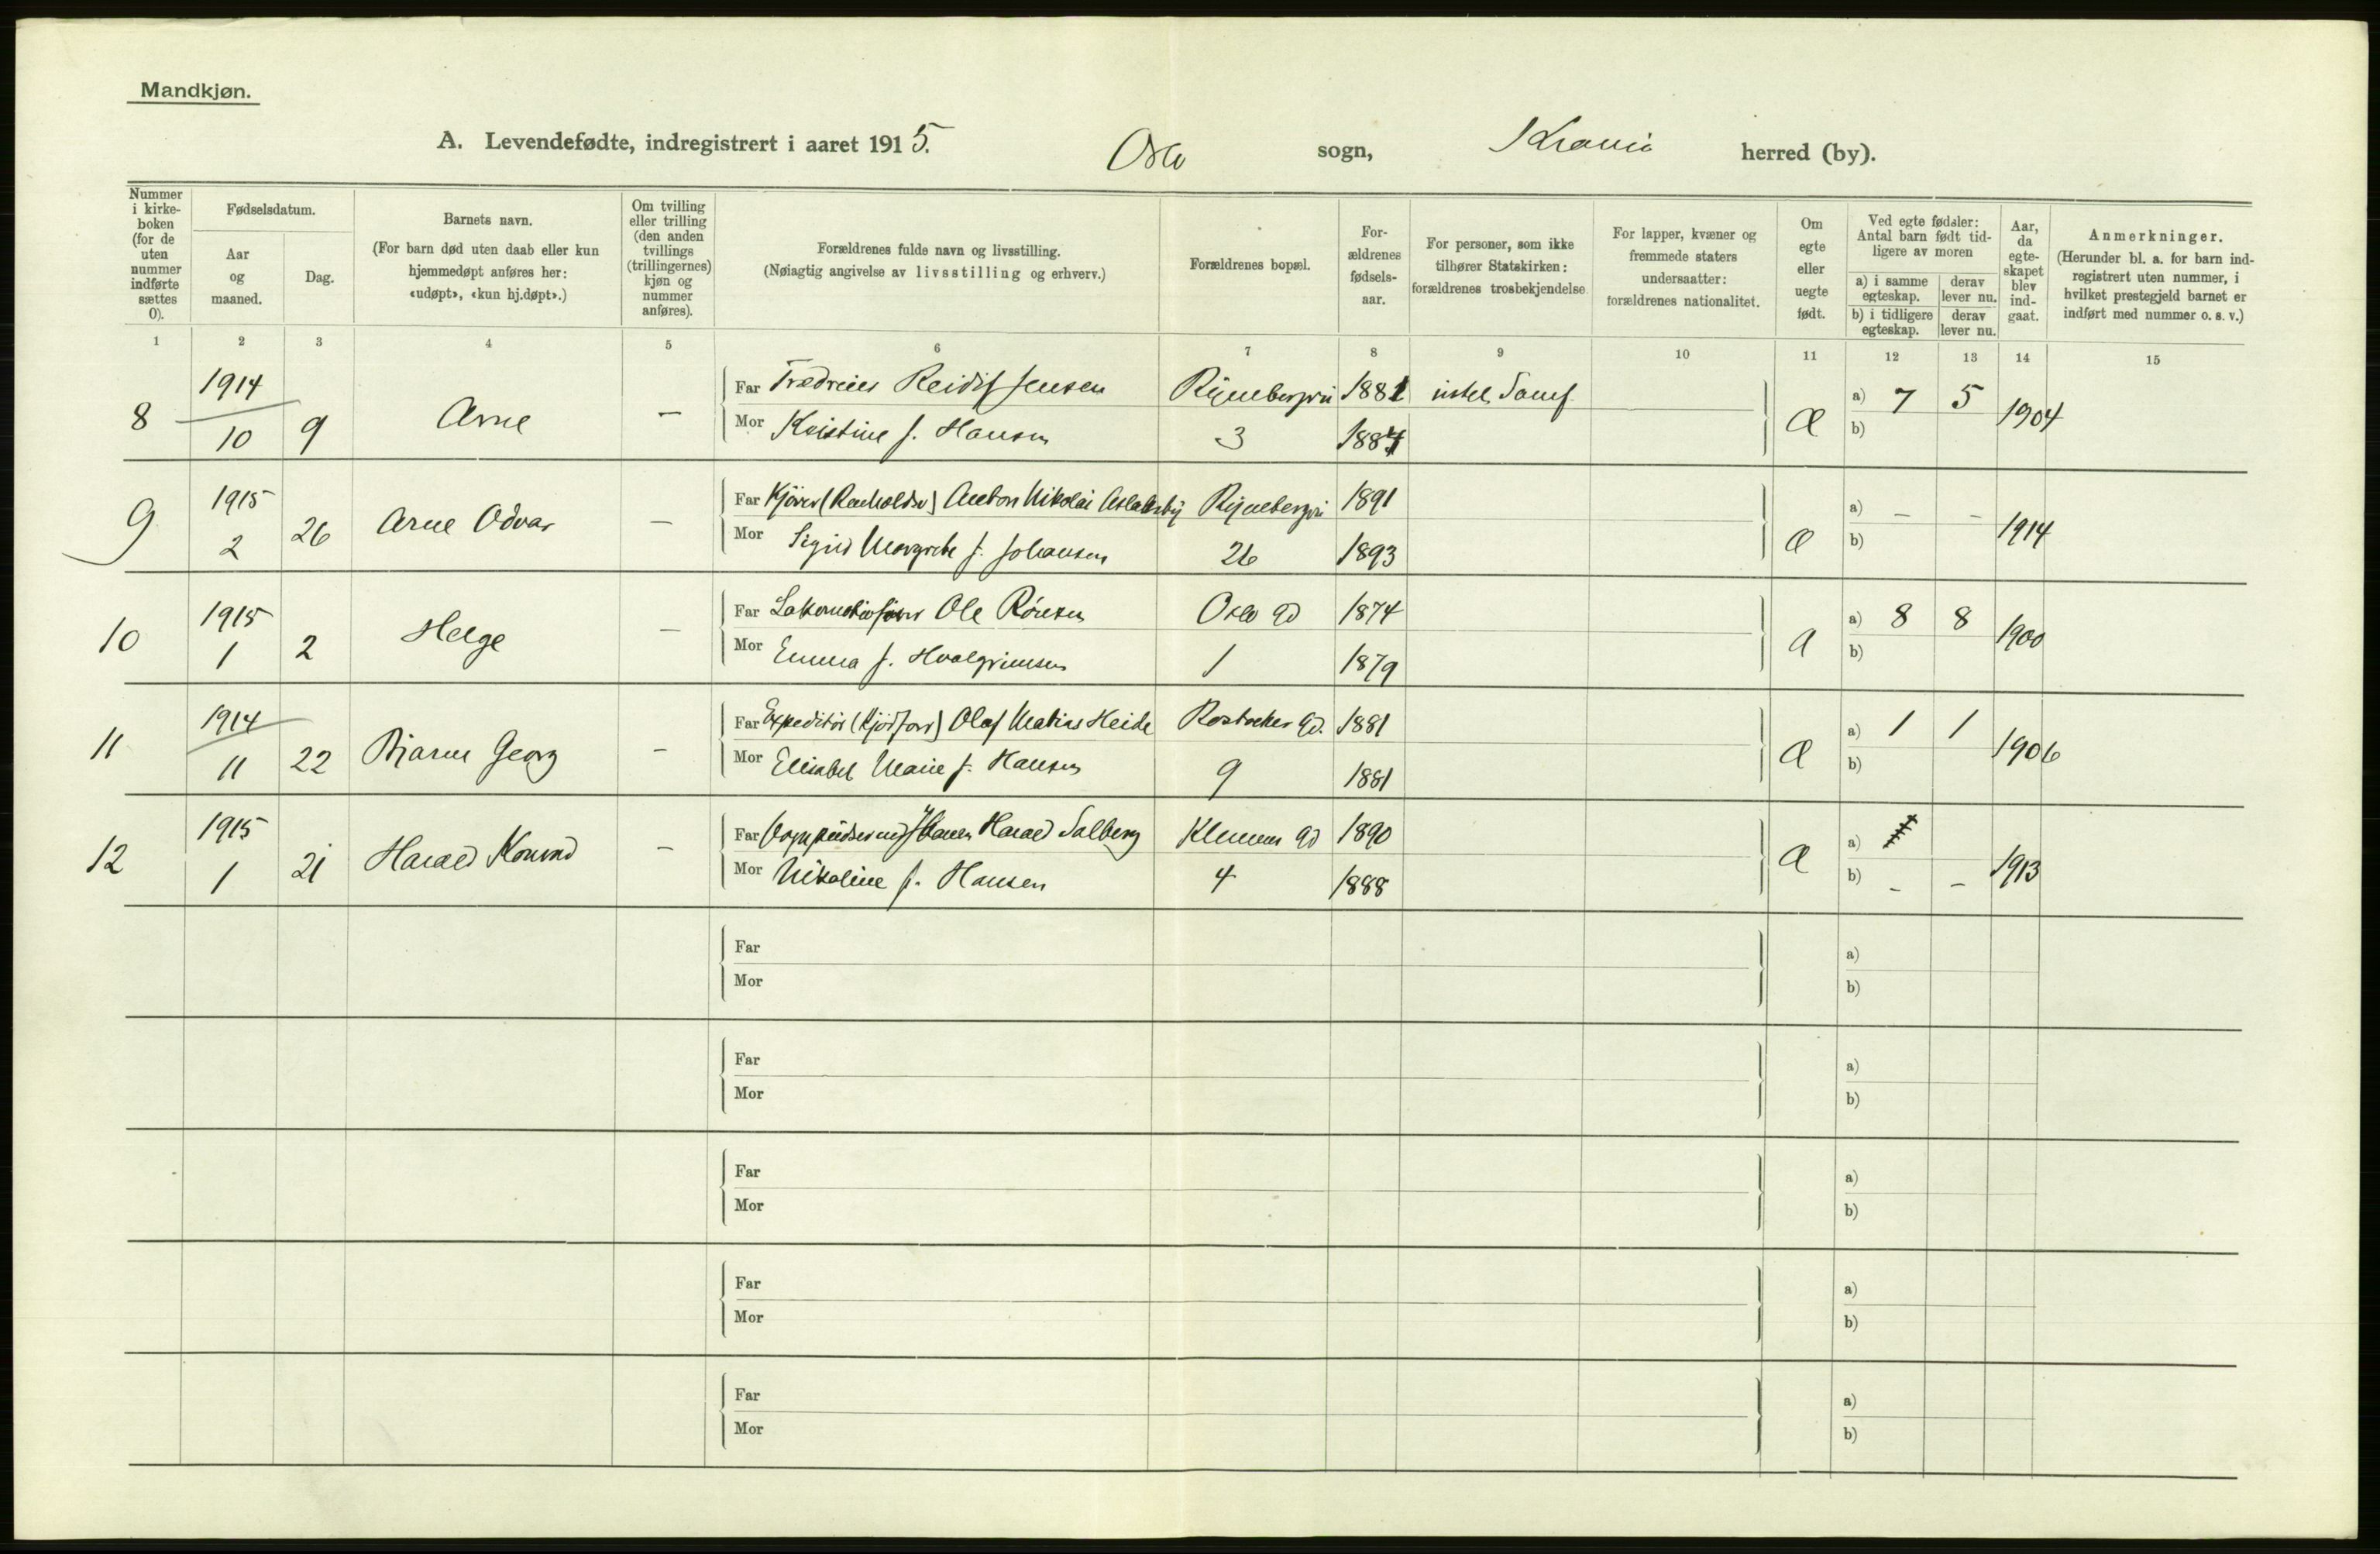 Mandkjøn.
A. Levendefødte, indregistrert i aaret 1915. Oslo sogn, Kra​nia herred (by).
Nummer i kirkeboken (for de uten nummer indførte sættes 0).
Fødselsdatum.
Aar og maaned.
Dag.
Barnets navn.
(For barn død uten daab eller kun hjemmedøpt anføres her: «udøpt», «kun hj.døpt».)
Om tvilling eller trilling (den anden tvillings (trillingernes) kjøn og nummer anføres).
Forældrenes fulde navn og livsstilling.
(Nøiagtig angivelse av livsstilling og erhverv.)
Forældrenes bopæl.
Forældrenes fødselsaar.
For personer, som ikke tilhører Statskirken: forældrenes trosbekjendelse.
For lapper, kvæner og fremmede staters undersaatter: forældrenes nationalitet.
Om egte eller uegte født.
Ved egte fødsler: Antal barn født tidligere av moren
a) i samme egteskap. derav lever nu.
b) i tidligere egteskap. derav lever nu.
Aar, da egteskapet blev indgaat.
Anmerkninger.
(Herunder bl. a. for barn indregistrert uten nummer, i hvilket prestegjeld barnet er indført med nummer o. s. v.)
1 2 3 4 5 6 7 8 9 10 11 12 13 14 15
8 1914 10 9 Arne — Far Jensen 1881 a) 7 5 1904
Mor Kristine f. Hansen 3 1884 Æ b)
9 1915 2 26 Arne Odvar — Far Kjører (Renholdsv) Anton Nikolai 1891 a) – – 1914
Mor Sigrid Margrete f. Johansen 26 1893 Æ b)
10 1915 1 2 Helge — Far Ole Rönsen Oslo gd 1874 a) 8 8 1900
Mor Emma f. 1 1879 b)
11 1914 11 22 Bjarne Georg – Far Expeditör (Kjödforr) Olaf Matias Heide Rostocker gd. 1881 a) 1 1 1906
Mor Elisabet Marie f. Hansen 9 1881 Æ b)
12 1915 1 21 Harald Konrad – Far Harald Salberg Klemens gd 1890 a)
Mor Nikoline f. Hansen 4 1888 Æ b) – – 1913
Far a)
Mor b)
Far a)
Mor b)
Far a)
Mor b)
Far a)
Mor b)
Far a)
Mor b)